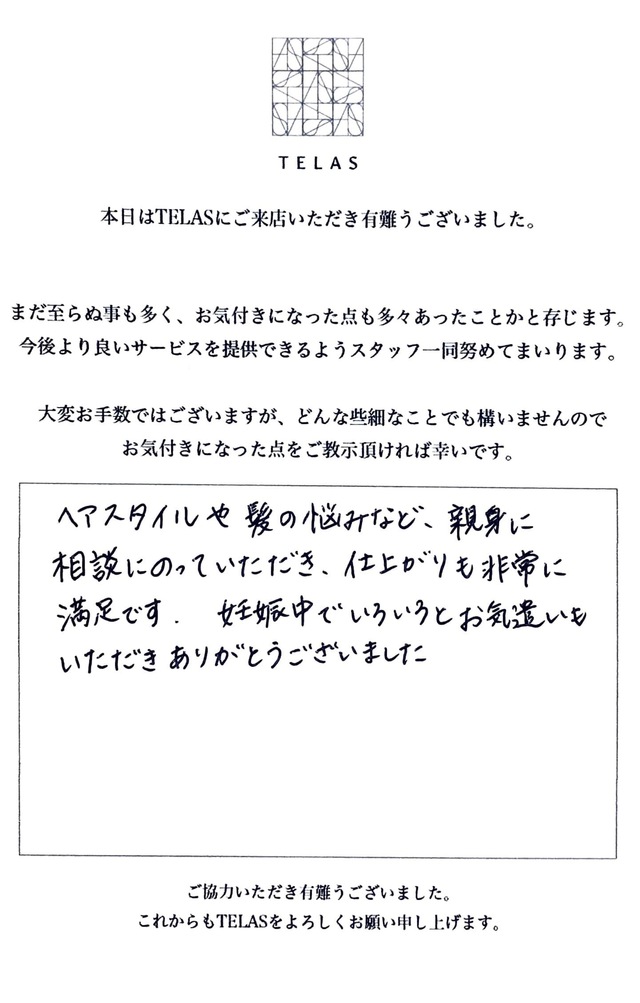 TELAS
本日はTELASにご来店いただき有難うございました。
まだ至らぬ事も多く、お気付きになった点も多々あったことかと存じます。
今後より良いサービスを提供できるようスタッフ一同努めてまいります。
大変お手数ではございますが、どんな些細なことでも構いませんので
お気付きになった点をご教示頂ければ幸いです。
ヘアスタイルや髪の悩みなど、親身に
相談にのっていただき、仕上がりも非常に
満足です. 妊娠中でいろいろとお気遣いも
いただきありがとうございました
ご協力いただき有難うございました。
これからもTELASをよろしくお願い申し上げます。